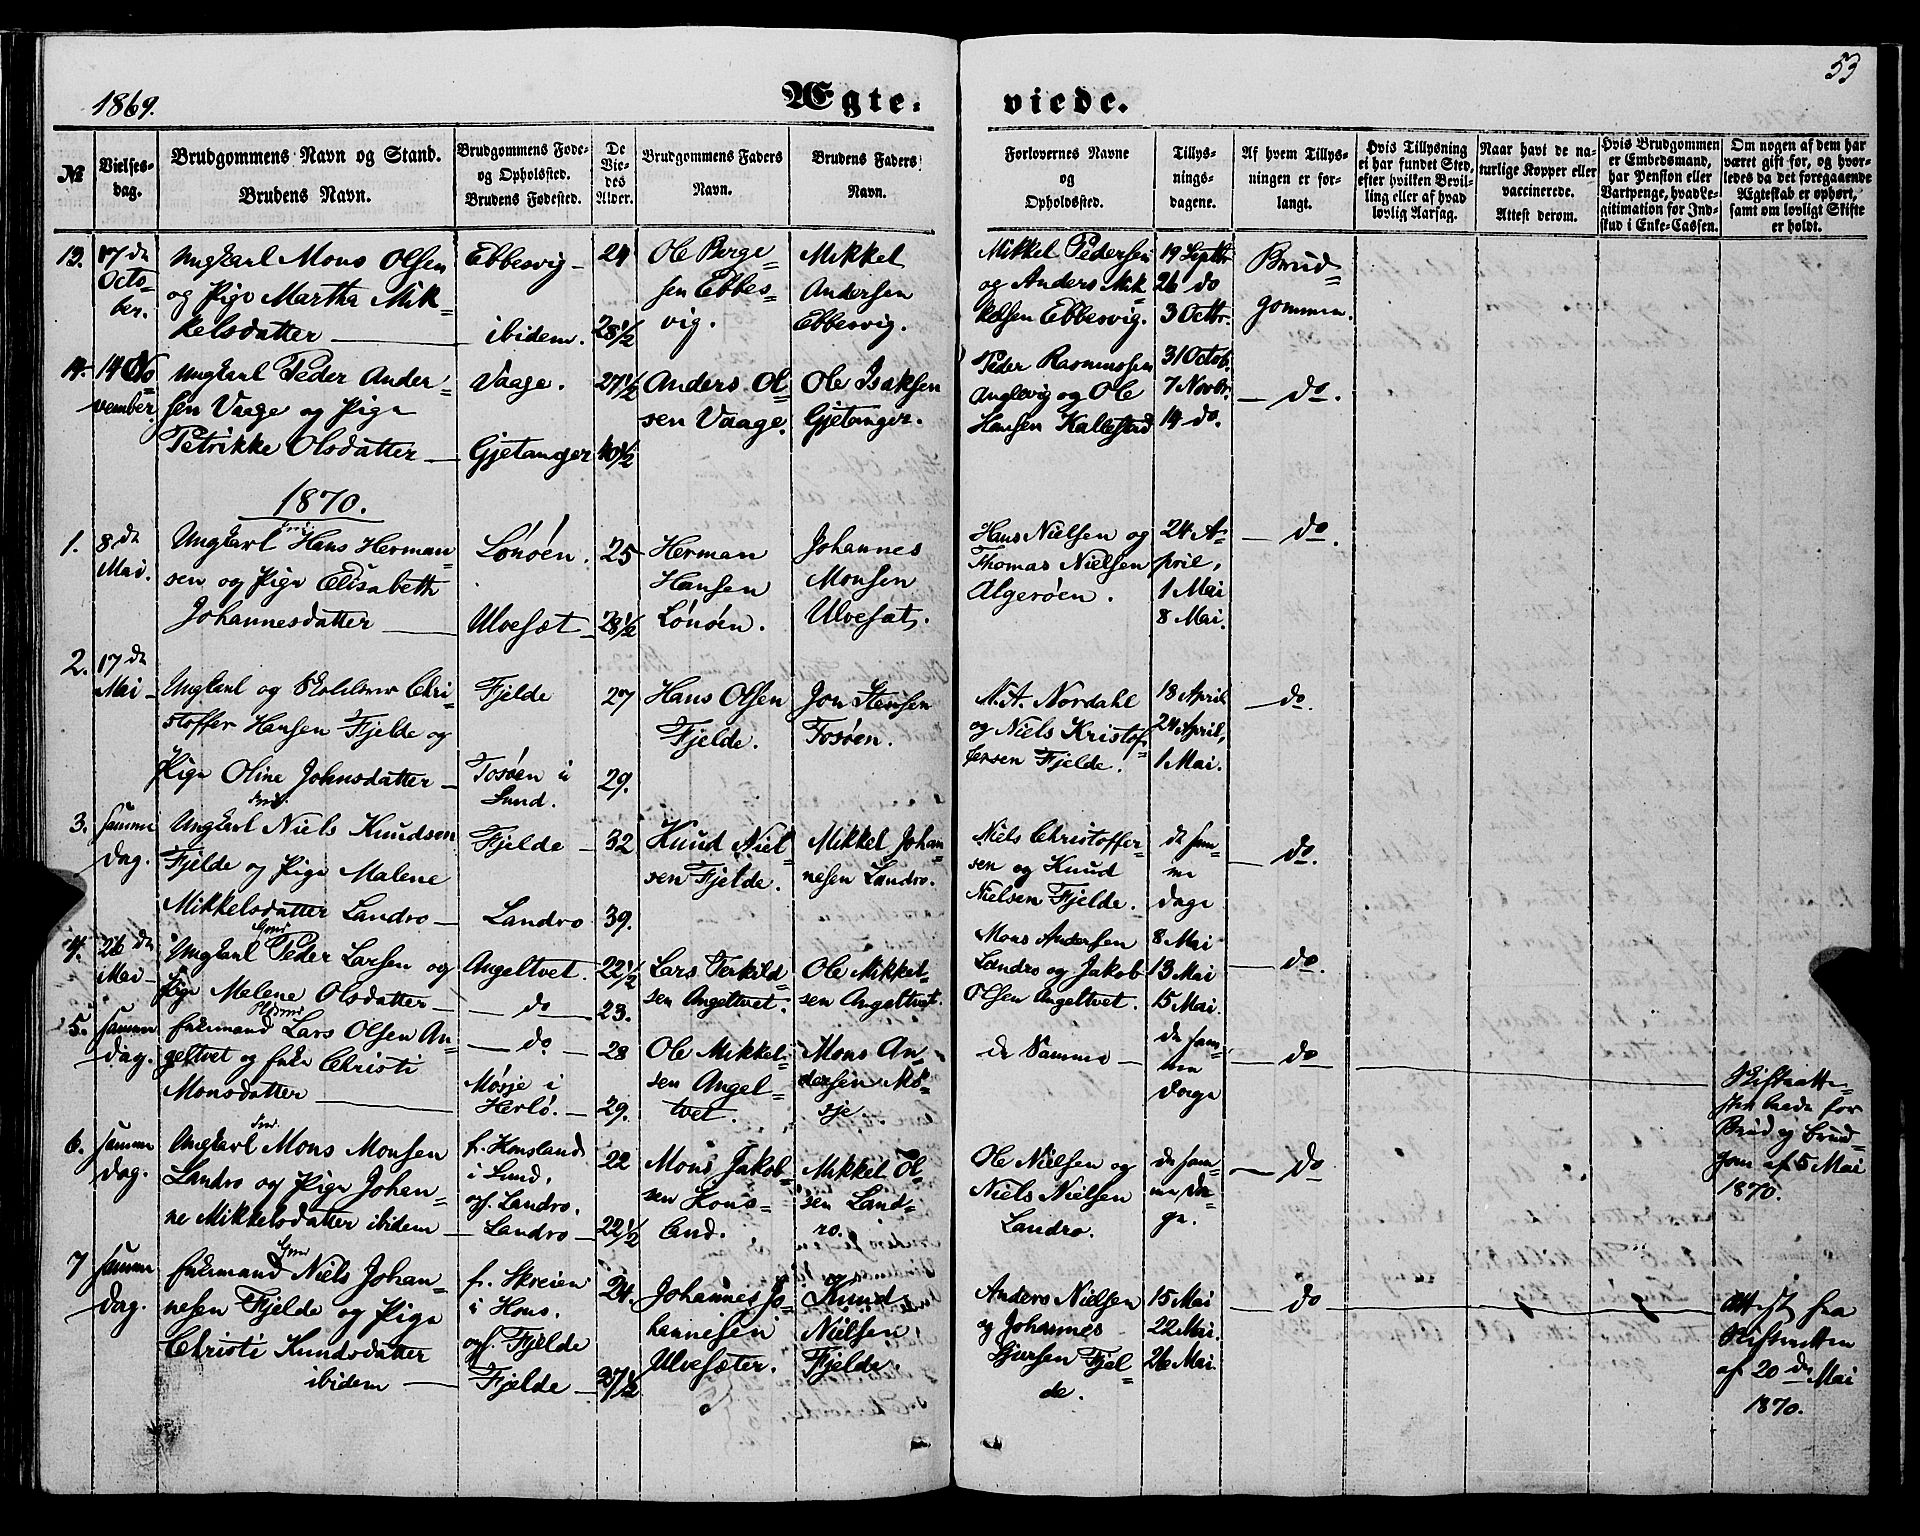 53
1869.
Ægte-
viede.
№
Vielses-
dag.
Brudgommens Navn og Stand.
Brudens Navn.
Brudgommens Føde-
og Opholdsted.
Brudens Fødested.
De
Vie-
des
Alder.
Brudgommens Faders
Navn.
Brudens Faders
Navn.
Forlovernes Navne
og
Opholdssted.
Tillys-
nings-
dagene.
Af hvem Tillys-
ningen er for-
langt.
Hvis Tillysning
ei har fundet Sted,
efter hvilken Bevil-
ling eller af hvad
lovlig Aarsag.
Naar havt de na-
turlige Kopper eller
vaccinerede.
Attest derom.
Hvis Brudgommen
er Embedsmand,
har Pension eller
Vartpenge, hvad Le-
gitimation for Ind-
stud i Enke-Cassen.
Om nogen af dem har
været gift før, og hvor-
ledes da det foregaaende
Ægteskab er ophørt,
samt om lovligt Skifte
er holdt.
13.
17 de
Octo-
ber.
Ungkarl Mons Olsen
og Pige Martha Mik-
kelsdatter
Ebbesvig
ibidem.
24
28 1/2
Ole Berge-
sen Ebbes-
vig.
Mikkel
Andersen
Ebbesvig.
Mikkel Pedersen
og Anders Mik-
kelsen Ebbesvig.
19 Septbr
26 do
3 Octbr.
Brud-
gommen.
14.
14 No-
vember
Ungkarl Peder Ander-
sen Vaage og Pige
Petrikke Olsdatter
Vaage.
Gjetanger
27 1/2
40 1/2
Anders Ol-
sen Vaage.
Ole Isaksen
Gjetanger.
Peder Rasmussen
Anglevig og Ole
Hansen Kallestad
31 Octob.
7 Novbr.
14 do.
do.
1870.
1.
8 de
Mai.
Ungkarl Hans Herman-
sen og Pige Elisabeth
Johannesdatter
Lønøen.
Ulvesæt
25
28 1/2
Herman
Hansen
Lønøen.
Johannes
Monsen
Ulvesæt.
Hans Nielsen og
Thomas Nielsen
Algerøen.
24 A-
pril,
1 Mai
8 Mai.
do.
2.
17 de
Mai
Ungkarl og Skolelærer Chri-
stoffer Hansen Fjelde og
Pige Oline Johnsdatter
Fjelde
Tosøen i
Lund.
27
29.
Hans Olsen
Fjelde.
Jon Stensen
Tosøen.
M. A. Nordahl
og Niels Kristof-
fersen Fjelde.
18 April
24 April,
1 Mai.
do.
3.
samme
Dag.
Ungkarl Niels Knudsen
Fjelde og Pige Malene
Mikkelsdatter Landro
Fjelde
Landro
32
39.
Knud Niel-
sen Fjelde.
Mikkel Johan-
nesen Landro.
Niels Christoffer-
sen og Knud
Nielsen Fjelde.
de sam-
me
Dage
do.
4.
26 de
Mai
Ungkarl Peder Larsen og
Pige Malene Olsdatter
Angeltvet.
do
22 1/2
23.
Lars Terkild-
sen Angeltvet.
Ole Mikkel-
sen Angeltvet.
Mons Andersen
Landro og Jakob
Olsen Angeltvet.
8 Mai
13 Mai
15 Mai.
do.
5.
samme
Dag.
Enkemand Lars Olsen An-
geltvet og Enke Christi
Monsdatter
do
Møsje i
Herlø.
28
29.
Ole Mikkel-
sen Angel-
tvet.
Mons An-
dersen Mø-
sje
de Samme
de sam-
me
Dage
do
Skifteatte-
ster baade for
Brud og Brud-
gom af 5 Mai
1870.
6.
samme
Dag.
Ungkarl Mons Monsen
Landro og Pige Johan-
ne Mikkelsdatter ibidem
f. Honsland
i Lund,
opf. Landro.
Landro
22
22 1/2
Mons Jakob-
sen Hons-
land.
Mikkel Ol-
sen Land-
ro.
Ole Nielsen og
Niels Nielsen
Landro.
de sam-
me Da-
ge.
do
7
samme
Dag.
Enkemand Niels Johan-
nesen Fjelde og Pige
Christi Knudsdatter
ibidem
f. Skreien
i Hons.
opf. Fjelde
Fjelde
24.
37 1/2
Johannes Jo-
hannesen
Ulvesæter.
Knud
Nielsen
Fjelde.
Anders Nielsen
og Johannes
Sjursen Fjel-
de.
15 Mai
22 Mai.
26 Mai.
do
Attest fra
Skifteretten
af 20 de Mai
1870.